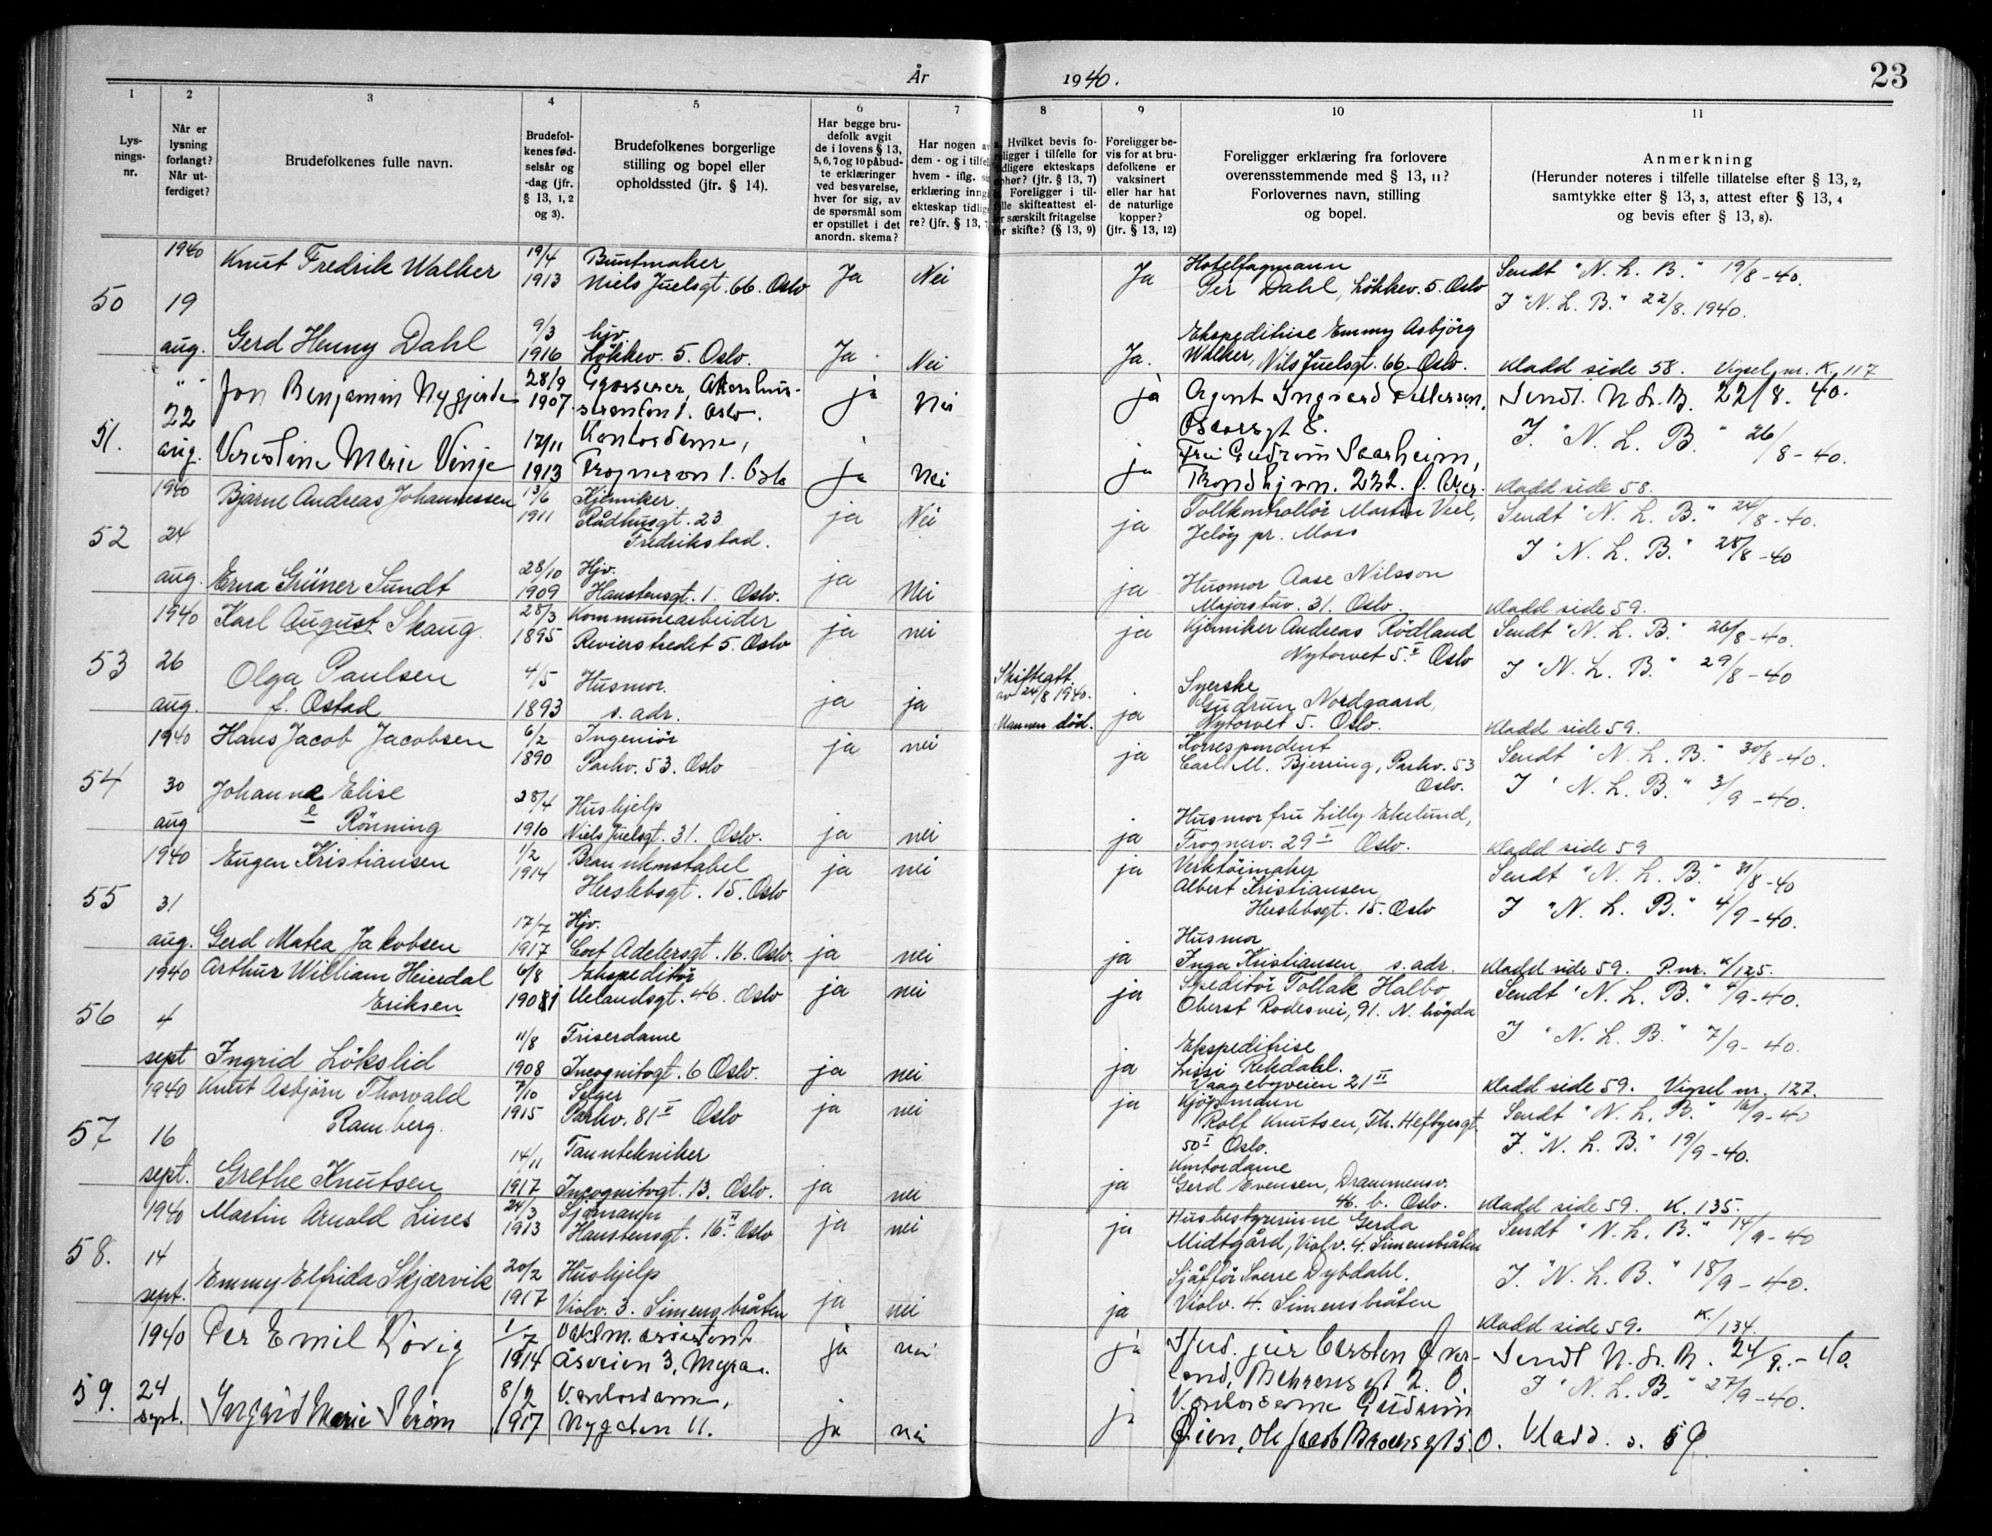 År 1940.
23
1 2 3 4 5 6 7 8 9 10 11
Lys-
nings-
nr.
Når er
lysning
forlangt?
Når ut-
ferdiget?
Brudefolkenes fulle navn.
Brudefol-
kenes fød-
selsår og
-dag (jfr.
§ 13, 1, 2
og 3).
Brudefolkenes borgerlige
stilling og bopel eller
opholdssted (jfr. § 14).
Har begge bru-
defolk avgit
de i lovens § 13,
5, 6, 7 og 10 påbud-
te erklæringer
ved besvarelse,
hver for sig, av
de spørsmål som
er opstillet i det
anordn. skema?
Har nogen av
dem - og i tilfel
hvem - iflg.
erklæring inng
ekteskap tidlig
re? (jfr. § 13,
Hvilket bevis fo-
religger i tilfelle for
tidligere ekteskaps
ophør? (jfr. § 13, 7)
Foreligger i til-
felle skifteattest el-
ler særskilt fritagelse
for skifte? (§ 13, 9)
Foreligger be-
vis for at bru-
defolkene er
vaksinert
eller har hat
de naturlige
kopper?
(jfr. § 13, 12)
Foreligger erklæring fra forlovere
overensstemmende med § 13, 11?
Forlovernes navn, stilling
og bopel.
Anmerkning
(Herunder noteres i tilfelle tillatelse efter § 13, 2,
samtykke efter § 13, 3, attest efter § 13, 4
og bevis efter § 13, 8).
50 1940 19 aug.
Knut Fredrik Walker 19/4 1913 Buntmaker Niels Juelsgt. 66. Oslo Ja Nei Ja Hotelfagmann Per Dahl, Løkkev. 5. Oslo Sendt "N. L. B." 19/8-40.
I "N. L. B." 22/8. 1940.
Gerd Henny Dahl 9/3 1916 hjv. Løkkev. 5. Oslo. Ja Nei Ja. Ekspeditrise Emmy Asbjörg Walker, Nils Juelsgt. 66. Oslo. Kladd side 58. Vigsel nr. K. 117
51. " 22 aug.
Jon Benjamin Nygjerde 28/9 1907 Grosserer, Akershus-stranden 1. Oslo. ja Nei ja Agent Ingvard Pettersen, Oscarsgt 8. Sendt. N. L. B. 22/8. 40.
I. "N. L. B" 26/8-40.
Kirstine Marie Vinje 17/11 1913 Kontordame, Frognervn 1. Oslo ja Nei ja Fru Gudrun Saarheim, Trondhjvn. 232. Kladd side 58.
52 1940 24 aug.
Bjarne Andreas Johannessen 13/6 1911 Kjemiker Rådhusgt. 23 Fredrikstad. ja Nei ja Tollkontrollør Martin Veel, Jeløy pr. Moss Sendt "N. L. B." 24/8-40.
I "N. L. B." 28/8-40
Erna Grüner Sundt 28/10 1909 Hjv. Hansteensgt. 1. Oslo. ja Nei ja Husmor Aase Nilsson Majorstuv. 31. Oslo. Kladd side 59.
53 1940 26 aug.
Karl August Skaug. 28/3 1895 Kommunearbeider Revierstredet 5. Oslo ja nei ja Kjemiker Andreas Rödland Nytorvet 5. II Oslo Sendt "N. L. B." 26/8-40.
I "N. L. B." 29/8-40
Olga Paulsen f. Østad 4/5 1893 Husmor. s. adr. ja ja Skifteatt. av 24/8 1940. Mannen död. ja Syerske Gudrun Nordgaard, Nytorvet 5. Oslo. Kladd side 59.
54 1940 30 aug
Hans Jacob Jacobsen 6/2 1890 Ingeniör Parkv. 53. Oslo ja nei ja Korrespondent Carl M. Bjerring, Parkv. 53 Oslo. Sendt "N. L. B." 30/8-40.
I "N. L. B." 3/9-40.
Johanne Elise e Rönning 28/4 1910 Hushjelp Niels Juelsgt. 31. Oslo. ja nei ja Husmor fru Lilly Ekelund, Frognerv. 29 I Oslo. Kladd side 59
55 1940 31 aug.
Eugen Kristiansen 1/2 1914 Brannkonstabel Herslebsgt. 15. Oslo ja nei ja Verktöimaker Albert Kristiansen, Herslebsgt. 15. Oslo Sendt "N. L. B." 31/8-40
I "N. L. B." 4/9-40.
Gerd Matea Jakobsen 17/7 1917 Hjv. Cort Adelersgt. 16. Oslo. ja nei ja Husmor Inga Kristiansen s. adr. Kladd side 59. P. nr. K/125.
56 1940 4 sept
Arthur William Heierdal Eriksen 6/8 1901 Ekspeditör Uelandsgt. 46. Oslo ja nei ja Speditør Tollak Halbo, Oberst Rodesvei, 91. N. högda Sendt "N. L. B." 4/9-40.
I "N. L. B." 7/9-40.
Ingrid Lökslid 11/8 1908 Friserdame Incognitogt. 6 Oslo. ja nei ja Ekspeditrise Lissi Rekdahl. Vaagebyveien 21 II Kladd side 59. Vigsel nr. 127.
57 1940 16 sept.
Knut Asbjörn Thorvald Ramberg. 7/10 1915 Selger Parkv. 81 II Oslo ja nei ja Kjöpmann Rolf Knutsen, Th. Heftyesgt. 50 I Oslo. Sendt "N. L. B." 16/9-40
I. "N. L. B" 19/9-40.
Grethe Knutsen 14/11 1917 Tanntekniker Incognitogt. 13. Oslo. ja nei ja Kontordame Gerd Evensen, Drammensv. 46. b. Oslo. Kladd side 59. K. 135.
58. 1940 14 sept.
Martin Arnold Lines 24/3 1913 Sjömann Hansteensgt. 16 II Oslo ja nei ja Husbestyrerinne Gerda Midtgård, Violv. 4. Simensbråten Sendt "N. L. B." 14/9-40
I. "N. L. B." 18/9-40.
Emmy Elfrida Skjærvik 20/2 1917 Hushjelp Violv. 3. Simensbråten ja nei ja Sjåffør Sverre Dybdahl. Violv. 4. Simensbråten Kladd side 59. K./134.
59. 1940 24 sept.
Per Emil Rövig 1/7 1914 Åsveien 3, Myra. ja nei ja Stud. jur Carsten Øverland, Behrensgt 2. O Sendt N. L. B. 24/9.-40.
I "N. L. B." 27/9-40.
Ingrid Marie Ström 8/2 1917 Kontordame, Nygaten 11. ja nei ja Kontordame Gudrun Øien, Ole Jacob Brochsgt 5. O. Kladd. s. 59